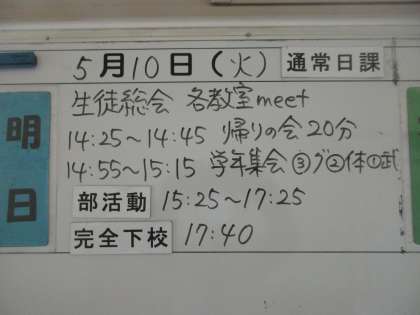 5月10日(火) 通常日課
明日
生徒総会 各教室meet
14:25~14:45 帰りの会20分
14:55~15:15 学年集会③グ②体①武
部活動 15:25~17:25
完全下校 17:40